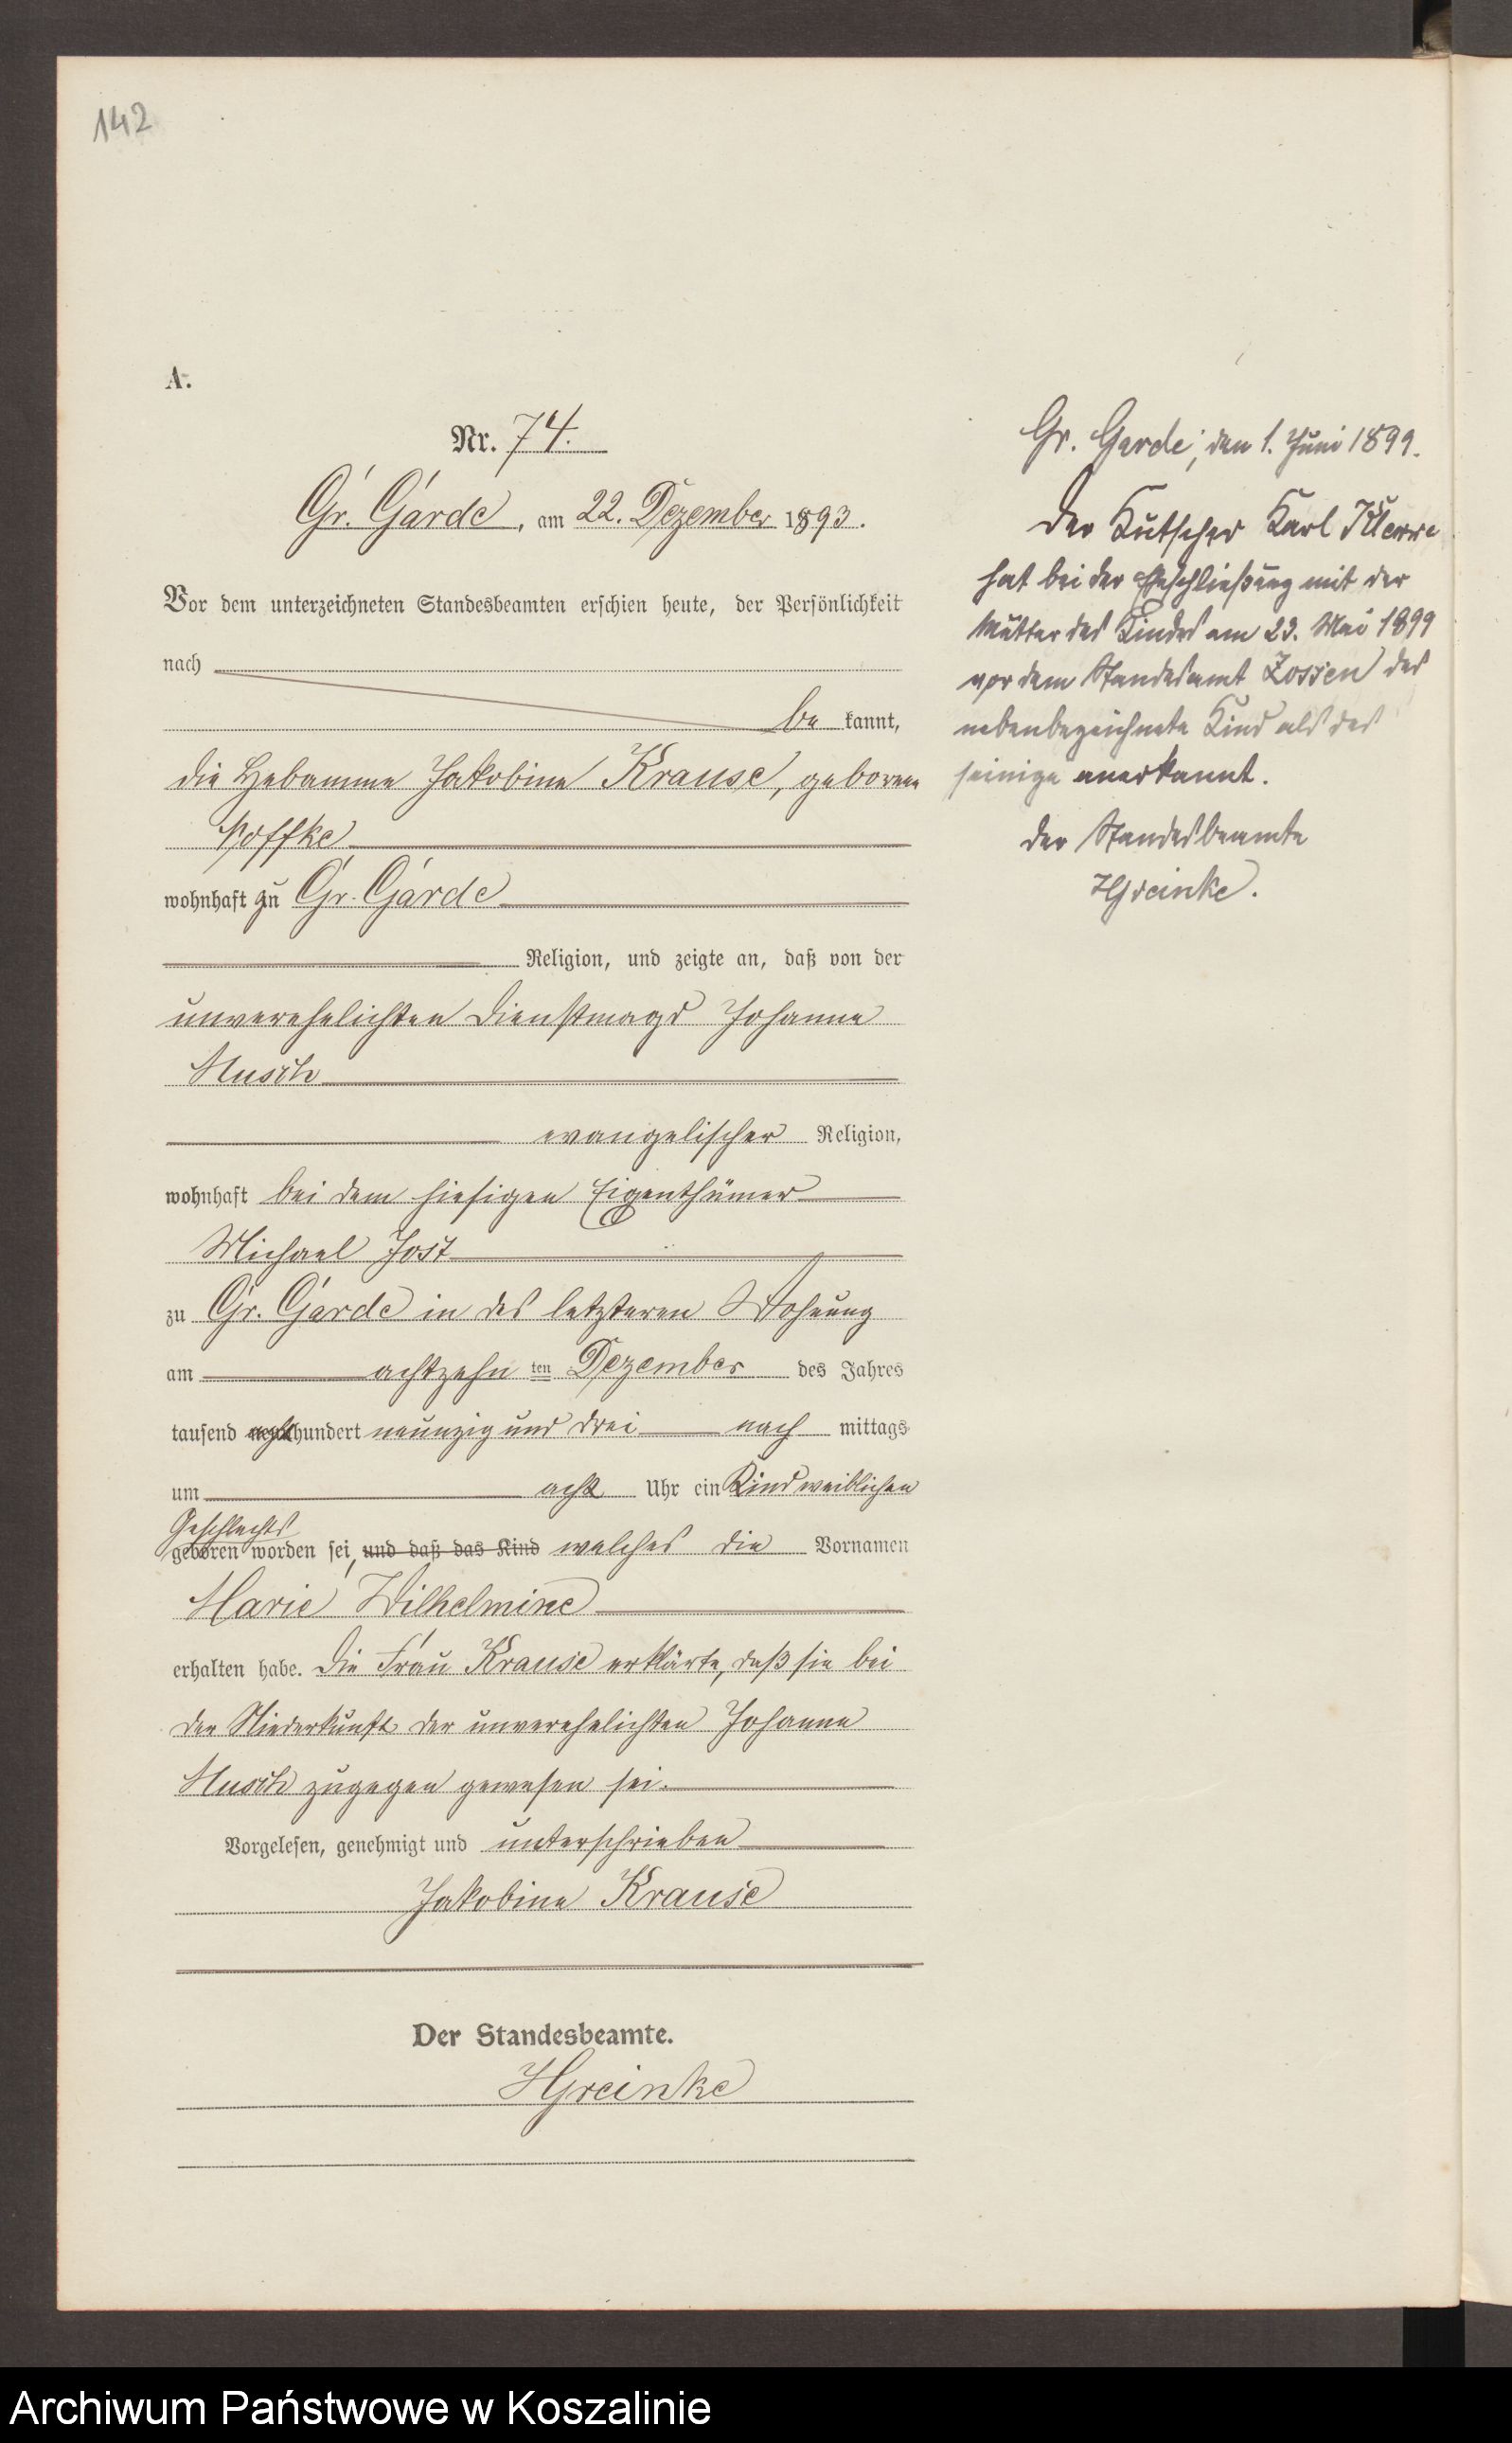 142
A.
Nr. 74.
Gr. Garde, am 22. Dezember 1893.
Vor dem unterzeichneten Standesbeamten erschien heute, der Persönlichkeit
nach
be kannt,
die Hebamme Jakobine Krause, geborene
Poffke
wohnhaft zu Gr. Garde
Religion, und zeigte an, daß von der
unverehelichten Dienstmagd Johanne
wohnhaft bei dem hiesigen Eigenthümer
evangelischer Religion,
Michael Jost
zu Gr. Garde in des letzteren Wohnung
am achtzehn ten Dezember des Jahres
tausend achthundert neunzig und drei nach mittags
um acht Uhr ein Kind weiblichen
Geschlechts
geboren worden sei, und daß das Kind welches die Vornamen
Marie Wilhelmine
erhalten habe. Die Frau Krause erklärte, daß sie bei
der Niederkunft der unverehelichten Johanne
zugegen gewesen sei.
Vorgelesen, genehmigt und unterschrieben
Jakobine Krause
Der Standesbeamte.
HGreinke
Gr. Garde, den 1. Juni 1899.
Der Kutscher Karl
hat bei der Eheschließung mit der
Mutter des Kindes am 23. Mai 1899
vor dem Standesamt Zossen das
nebenbezeichnete Kind als das
seinige anerkannt.
Der Standesbeamte
HGreinke.
Archiwum Państwowe w Koszalinie